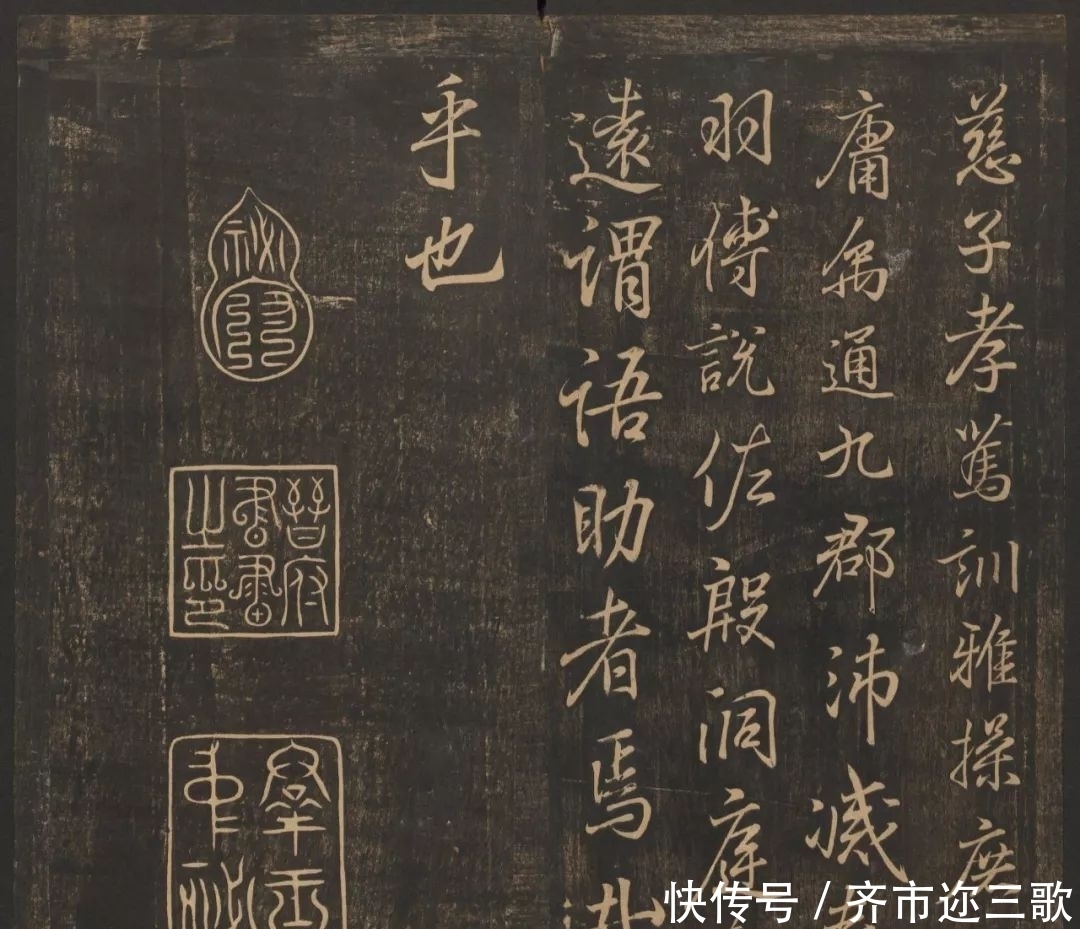 慈子孝篤訓雅操庶
庸禹通九郡沛滅
羽傅說佐殷洞庭
遠謂語助者焉
乎也
秘閣
晉府書畫之印
羣玉中秘
快传号 / 齐市迩三歌